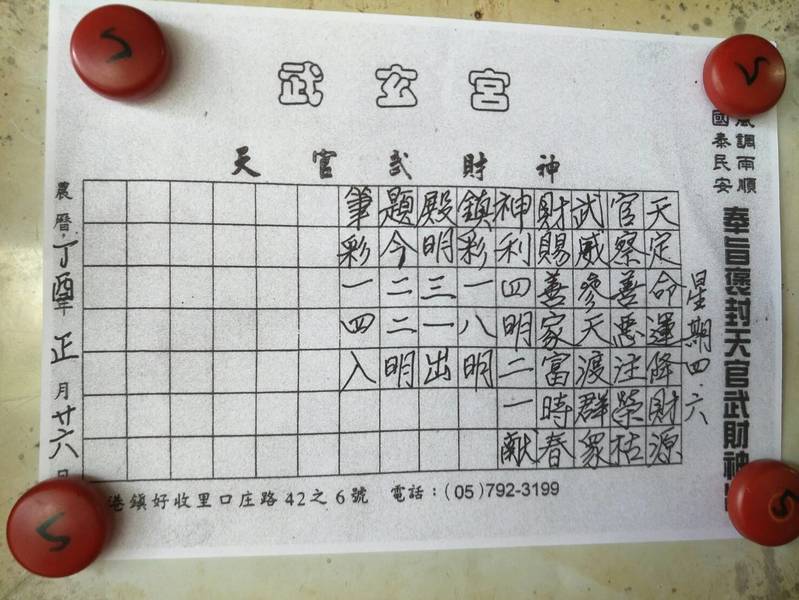 武玄宮
天官武財神
風調雨順
國泰民安
奉旨褒封天官武財神
星期四.六
天定命運降財源
官察善惡注榮枯
武威參天渡群眾
財賜善家富時春
神利四明二一獻
鎮彩一八明
殿明三一出
題今二二明
筆彩一四入
農曆丁酉年正月廿六日
港鎮好收里口庄路42之6號 電話：(05)792-3199